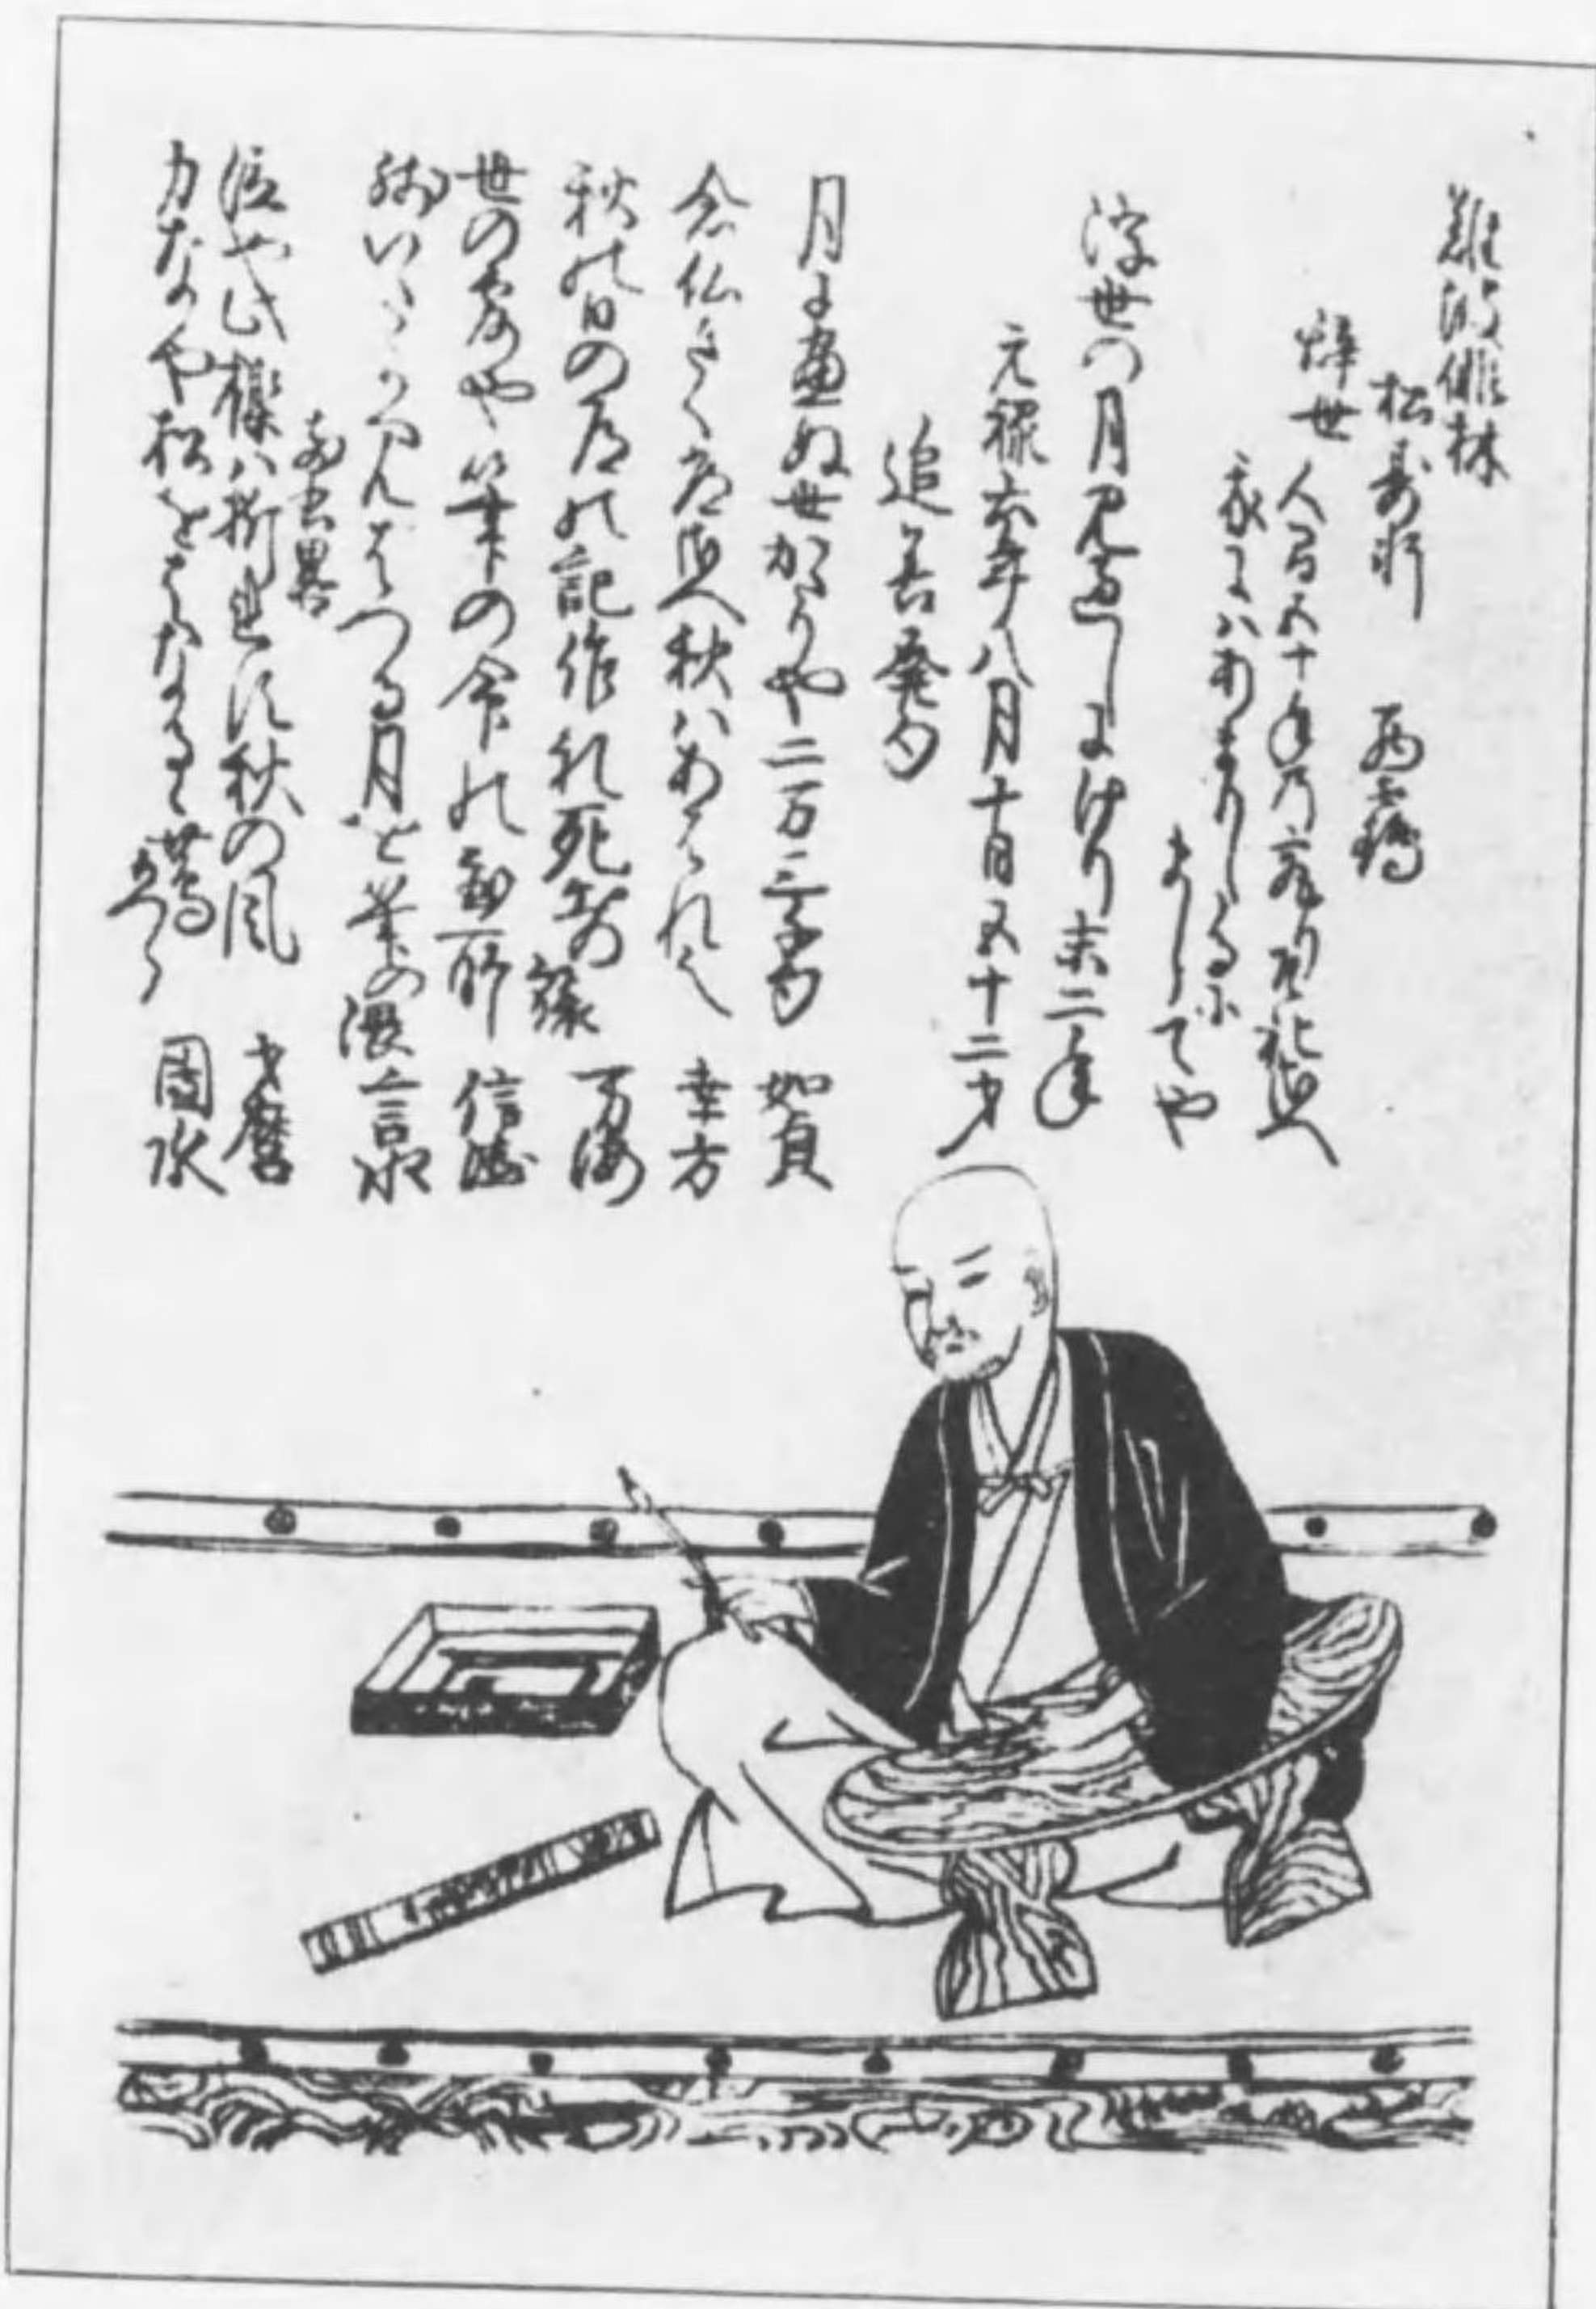 難波俳林
松寿軒 西鶴
辞世 人間五十年の究りそれさへ
我にハあまりたるに
ましてや
浮世の月見過しにけり末二年
元禄六年八月十日五十二才
追善発句
月に尽ぬ世がたりや二万三千句 如貞
念仏きく常さへ秋ハあはれ也 幸方
秋の日の道の記作れ死出の旅 万海
世の露や筆の命の置所 信徳
見はつる月を筆の隈 言水
泣や此 ハ折 秋の風 才麿
力なや松をはなるゝ蔦かつら 團水